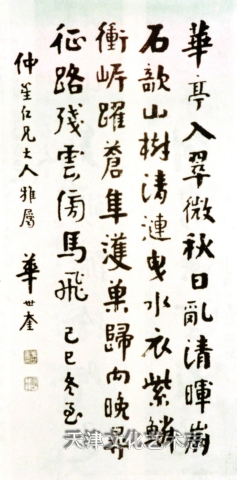 華亭入翠微秋日亂清暉崩
石欹山樹清漣曳水衣紫鱗
衝岸躍蒼隼護巢歸向晚尋
征路殘雲傍馬飛 己巳冬至
仲笙仁兄大人雅屬 華世奎
天津文化艺术